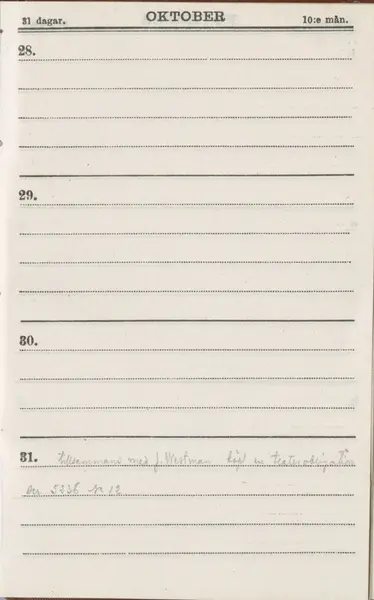 31 dagar. OKTOBER 10:e mån.
28.
29.
30.
31. tillsammans med J. Westman köpt en teaterobligation
Ser 5236 Nr 12